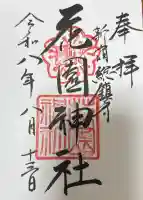 奉拝
新宿総鎮守
花園神社
令和八年八月十三日